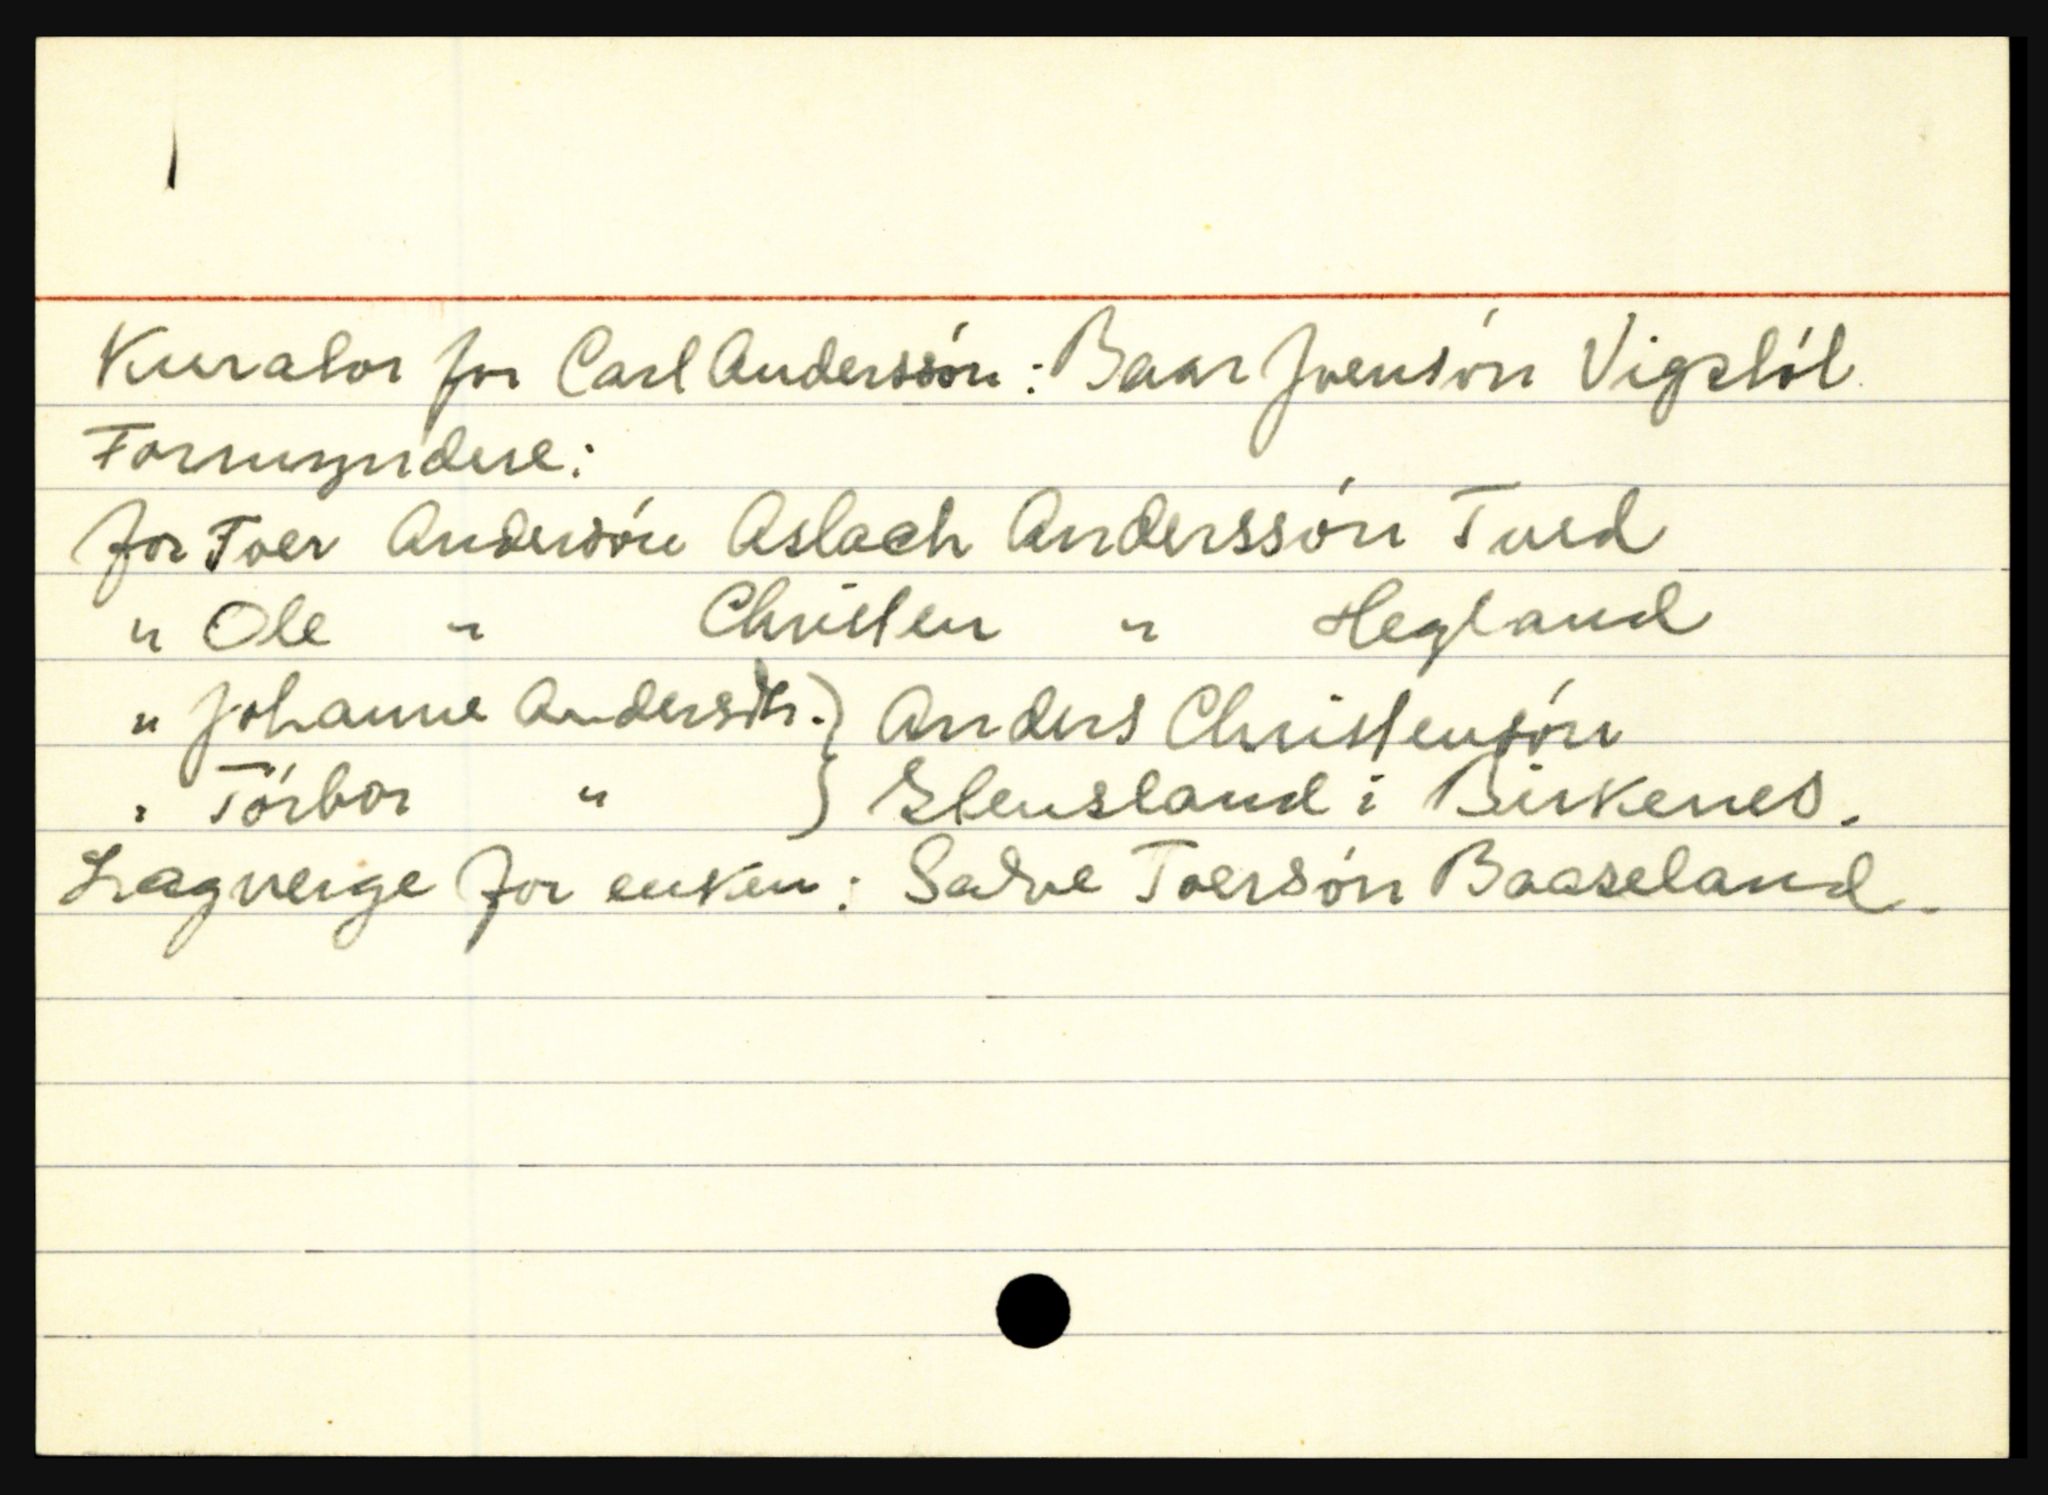 Kurator for Carl Anderssón: Baar Joensón Vigstól
Formyndere:
for Toer Andersón Aslach Anderssón Tved
" Ole " Christen " Hegland
" Johanne Andersdtr. } Anders Christensón
" Tórbor " } Glensland i Birkenes.
Lagverge for enken: Salve Toersón Baaseland.